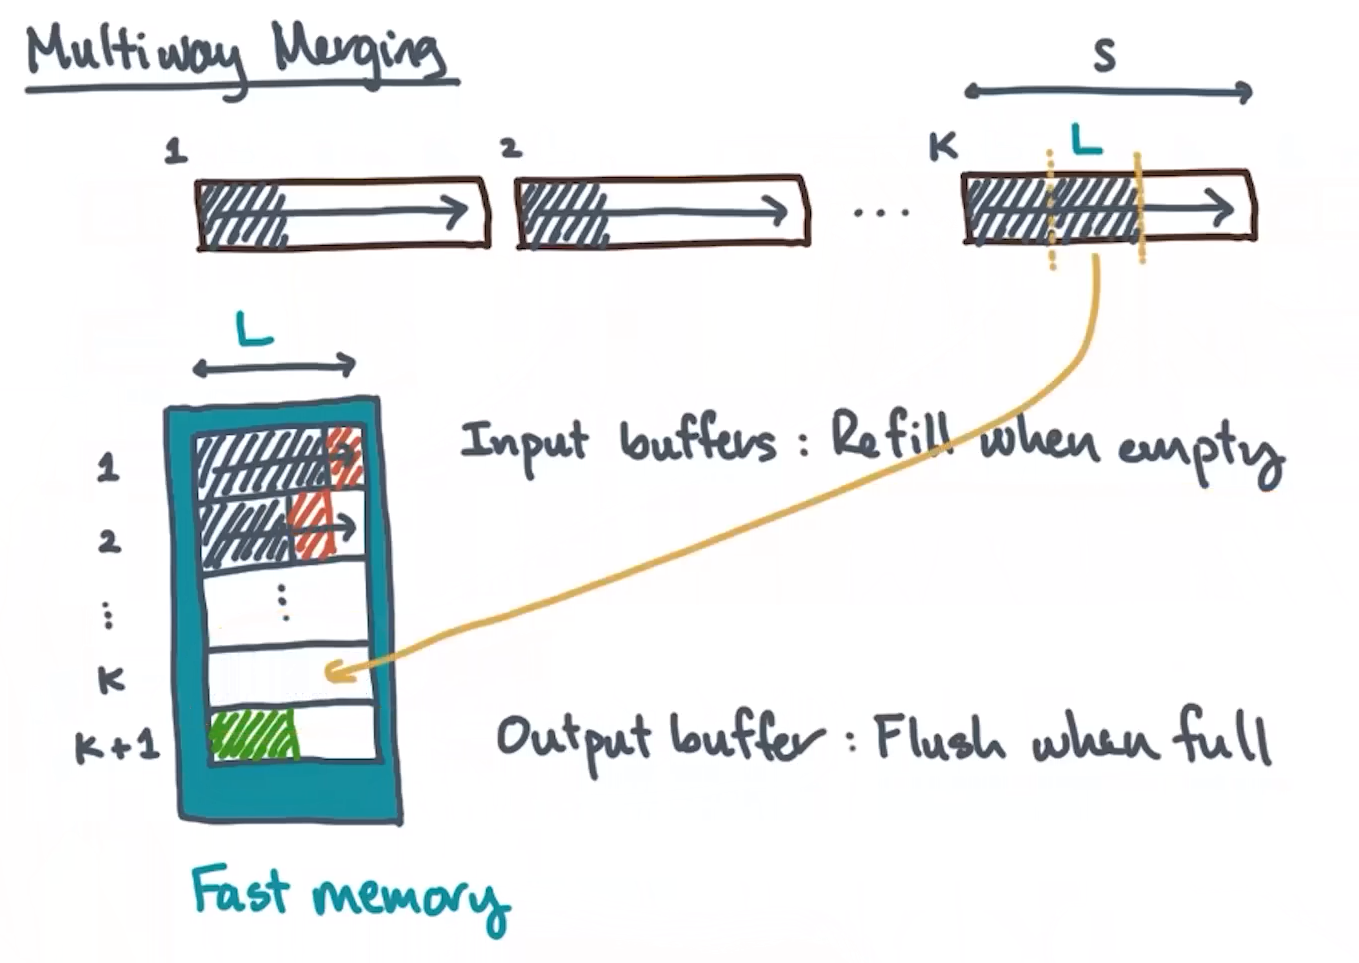 Multiway Merging
S
1
2
K
L
...
L
Input buffers : Refill when empty
1
2
⋮
⋮
K
K+1
Output buffer : Flush when full
Fast memory